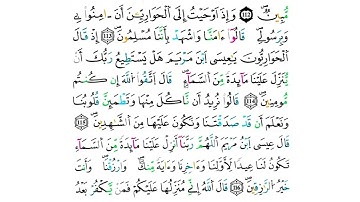 مُّبِينٌ ١١٢ وَإِذَ اَوْحَيْتُ إِلَى اَلْحَوَارِيِّـۧنَ أَنَ اٰمِنُواْ بِے
وَبِرَسُولِے قَالُوٓاْ ءَامَنَّا وَاشْهَدْ بِأَنَّنَا مُسْلِمُونَ ١١٣ إِذْ قَالَ
اَلْحَوَارِيُّونَ يَٰعِيسَى اَبْنَ مَرْيَمَ هَلْ يَسْتَطِيعُ رَبُّكَ
أَنْ يُّنَزِّلَ عَلَيْنَا مَآئِدَةً مِّنَ اَلسَّمَآءِ قَالَ اَتَّقُواْ اُللَّهَ إِن كُنتُم
مُّومِنِينَ ١١٤ قَالُواْ نُرِيدُ أَن نَّاكُلَ مِنْهَا وَتَطْمَئِنَّ قُلُوبُنَا
وَنَعْلَمَ أَن قَدْ صَدَقْتَنَا وَنَكُونَ عَلَيْهَا مِنَ اَلشَّٰهِدِينَ ١١٥
قَالَ عِيسَى اَبْنُ مَرْيَمَ اَللَّهُمَّ رَبَّنَآ أَنزِلْ عَلَيْنَا مَآئِدَةً مِّنَ اَلسَّمَآءِ
تَكُونُ لَنَا عِيداً لِّأَوَّلِنَا وَءَاخِرِنَا وَءَايَةً مِّنكَ وَارْزُقْنَا وَأَنتَ
خَيْرُ اُلرَّٰزِقِينَ ١١٦ قَالَ اَللَّهُ إِنِّے مُنَزِّلُهَا عَلَيْكُمْ فَمَنْ يَّكْفُرْ بَعْدُ